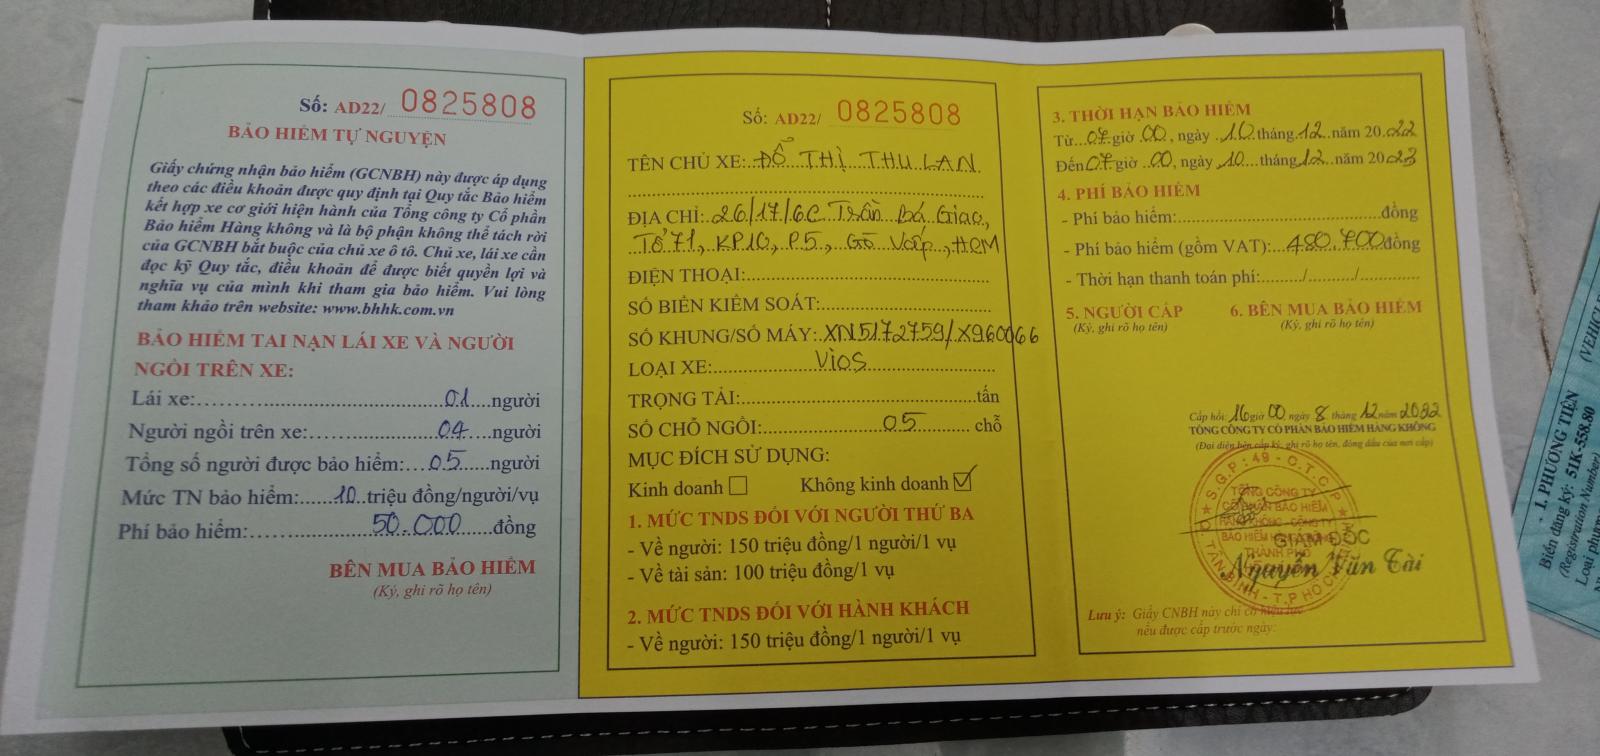 Số: AD22/ 0825808
BẢO HIỂM TỰ NGUYỆN
Giấy chứng nhận bảo hiểm (GCNBH) này được áp dụng
theo các điều khoản được quy định tại Quy tắc Bảo hiểm
kết hợp xe cơ giới hiện hành của Tổng công ty Cổ phần
Bảo hiểm Hàng không và là bộ phận không thể tách rời
của GCNBH bắt buộc của chủ xe ô tô. Chủ xe, lái xe cần
đọc kỹ Quy tắc, điều khoản để được biết quyền lợi và
nghĩa vụ của mình khi tham gia bảo hiểm. Vui lòng
tham khảo trên website: www.bhhk.com.vn
BẢO HIỂM TAI NẠN LÁI XE VÀ NGƯỜI
NGỒI TRÊN XE:
Lái xe:............01....người
Người ngồi trên xe:............04....người
Tổng số người được bảo hiểm:...05......người
Mức TN bảo hiểm:......10..triệu đồng/người/vụ
Phí bảo hiểm:............50.000......đồng
BÊN MUA BẢO HIỂM
(Ký, ghi rõ họ tên)
Số: AD22/ 0825808
TÊN CHỦ XE: ĐỖ THỊ THU LAN
ĐỊA CHỈ: 26/17/6C Trần Bá Giao,
Tổ 71, KP10, P5, Gò Vấp, HCM
ĐIỆN THOẠI:............
SỐ BIỂN KIỂM SOÁT:............
SỐ KHUNG/SỐ MÁY: XN5172759/X960066
LOẠI XE: Vios
TRỌNG TẢI:............tấn
SỐ CHỖ NGỒI:............05...... chỗ
MỤC ĐÍCH SỬ DỤNG:
Kinh doanh ☐ Không kinh doanh ☑
1. MỨC TNDS ĐỐI VỚI NGƯỜI THỨ BA
- Về người: 150 triệu đồng/1 người/1 vụ
- Về tài sản: 100 triệu đồng/1 vụ
2. MỨC TNDS ĐỐI VỚI HÀNH KHÁCH
- Về người: 150 triệu đồng/1 người/1 vụ
3. THỜI HẠN BẢO HIỂM
Từ...07.giờ 00, ngày ..10.tháng.12..năm 20.22
Đến 07 giờ ..00, ngày ..10....tháng 12...năm 2023
4. PHÍ BẢO HIỂM
- Phí bảo hiểm:............đồng
- Phí bảo hiểm (gồm VAT):...480.700đồng
- Thời hạn thanh toán phí:......./......../............
5. NGƯỜI CẤP 6. BÊN MUA BẢO HIỂM
(Ký, ghi rõ họ tên) (Ký, ghi rõ họ tên)
Cấp hồi: 16 giờ 00 ngày 8 tháng 12 năm 2022
TỔNG CÔNG TY CỔ PHẦN BẢO HIỂM HÀNG KHÔNG
(Đại diện bên cấp ký, ghi rõ họ tên, đóng dấu của nơi cấp)
S.G.P : 49 - C.T.C.P
TỔNG CÔNG TY
CỔ PHẦN BẢO HIỂM
HÀNG KHÔNG - CÔNG TY
BẢO HIỂM HÀNG KHÔNG
THÀNH PHỐ
Q. TÂN BÌNH - T.P HỒ CHÍ
GIÁM ĐỐC
Nguyễn Văn Tài
Lưu ý: Giấy CNBH này chỉ có hiệu lực
nếu được cấp trước ngày:
1. PHƯƠNG TIỆN (VEHICLE
Biển đăng ký: 51K-558.80
(Registration Number)